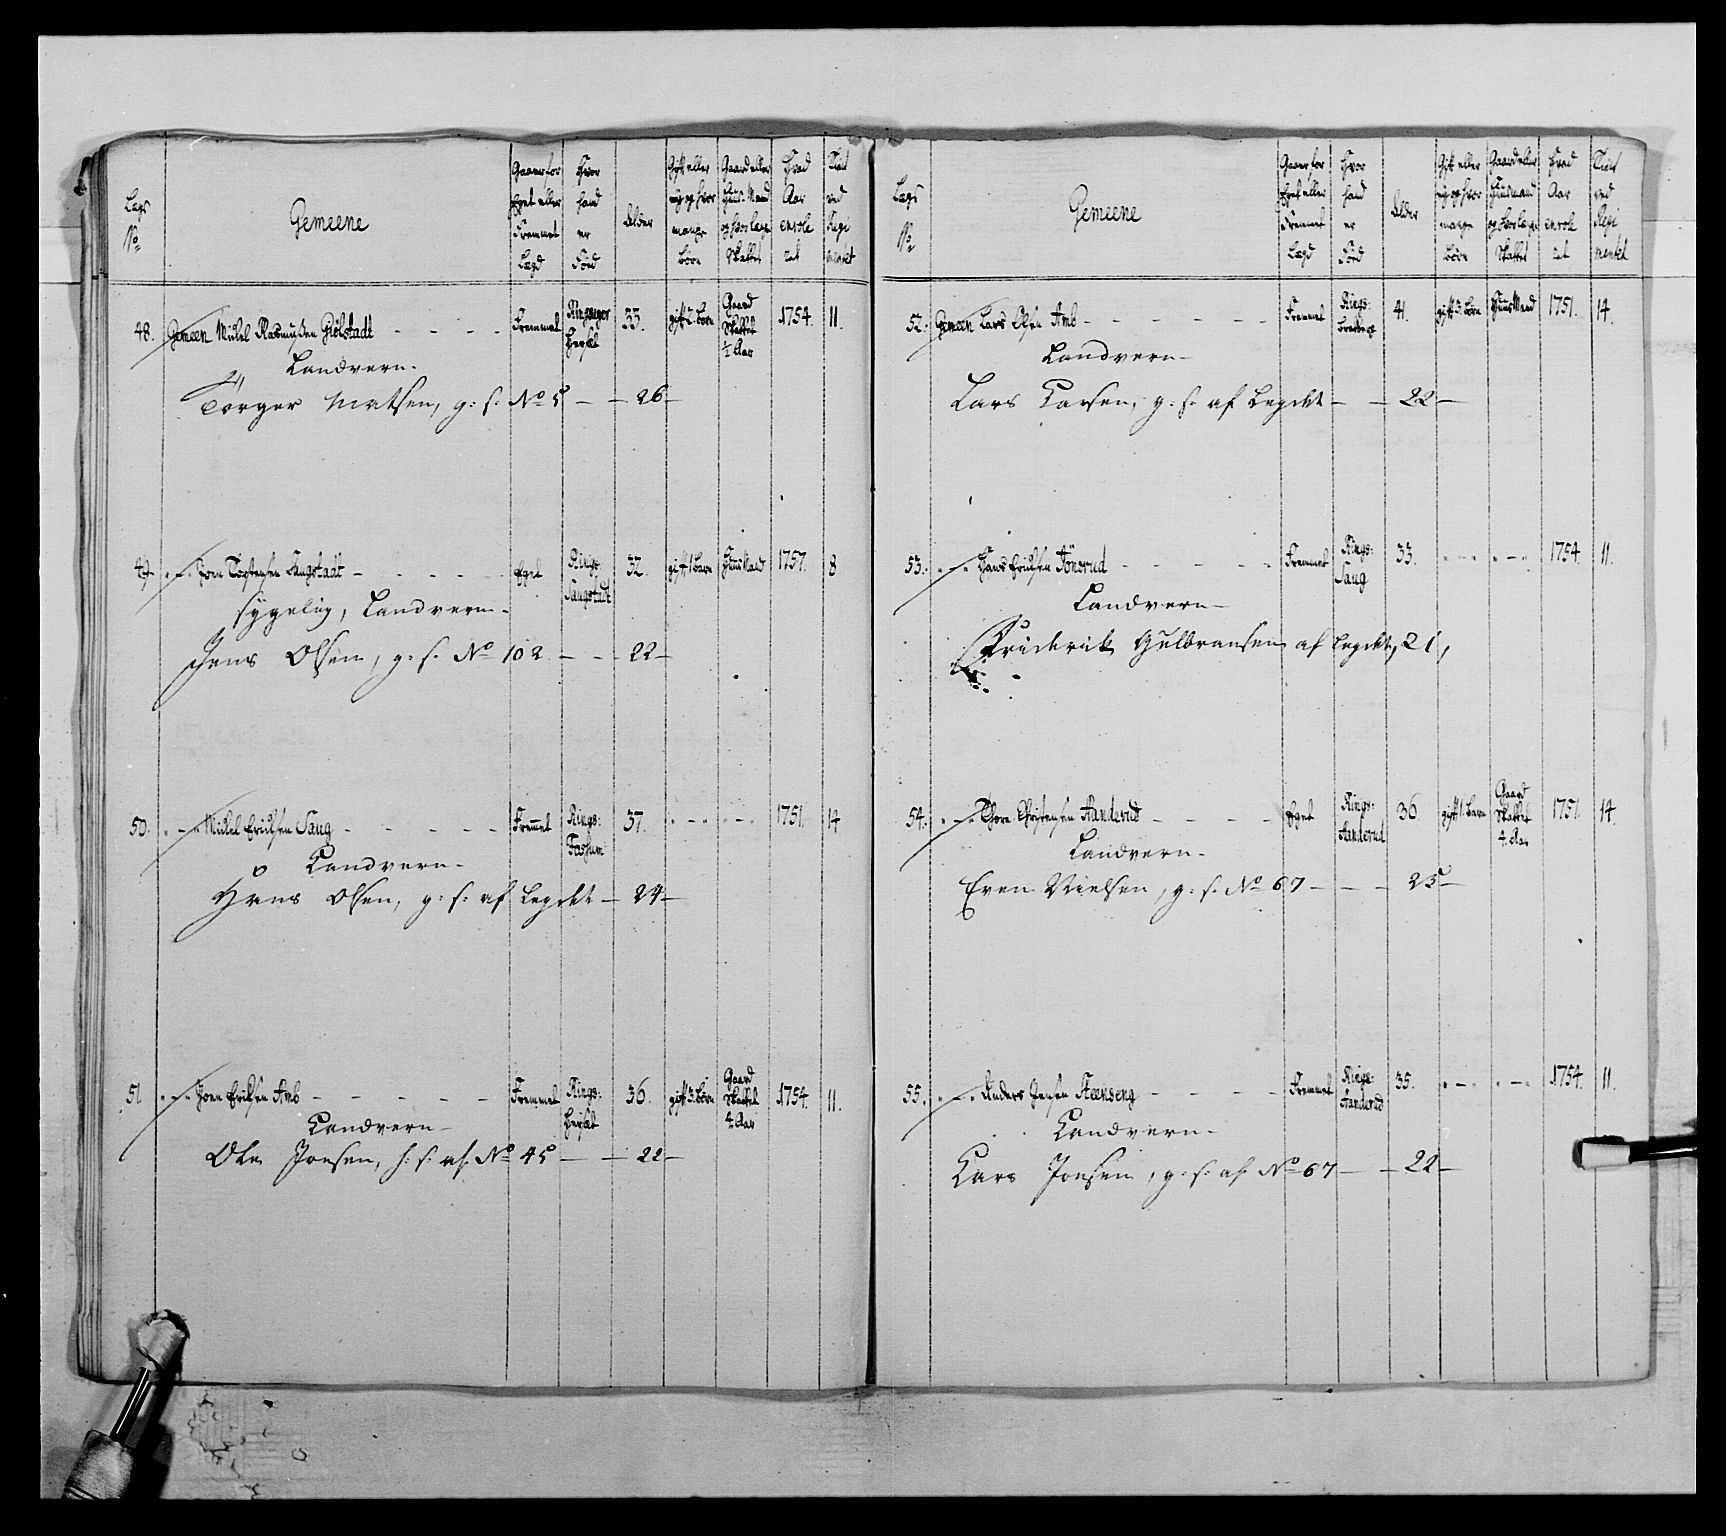 Lægs No
Gemeene
Gaaer for Eget eller Fremmet Lægd
Hvor hand er Född
Alder
Gift eller ey og hvor mange börn
Gaard eller Huus Mand og hvor længe Skattet
Hvad Aar enrolleret
Tient ved Regimentet
48. Gemeen Michel Rasmußen Giölstadt - - - - Fremmet Ringsager 33. gift 2 börn Gaard Skattet ½ Aar 1754. 11.
Landvern.
Törger Matsen, g: s: No 5 - - 26 -
49. Joen Torstensen Saugstadt - - - - Eget Rings: Saugstadt 32. gift 1 barn Huus Mand 1757. 8
sygelig, Landvern.
Jens Olsen, g: s. No 102 - - - 22 -
50. Michel Erichsen Saug - - - - - Fremet Rings: 37. - - - - - 1751. 14
Landvern -
Hans Olsen, g: s: af Legdet - 24 -
51. Joen Erichsen Amb - - - - - Fremmet Rings: 36. gift 3. börn Gaard Skattet 4. Aar 1754. 11.
Landvern -
Ole Joensen, s: af No 45 - - 22 -
Lægs No
Gemeene
Gaaer for Eget eller Fremmet Lægd
Hvor hand er Född
Alder
Gift eller ey og hvor mange börn
Gaard eller Huusmand og hvor længe Skattet
Hvad Aar enrolleret
Tient ved Regimentet
52. Gemeen Lars Olsen Amb - - - - - Fremmet Rings: 41. gift 3. börn Huus Mand 1751. 14.
Landvern -
Lars Larsen, g: s. af Legdet - - 22 -
53. Hans Erichsen Fönsrud - - - - - Fremmet Rings: Saug 33. - - - - - 1754. 11.
Landvern -
Friderich Gulbransen af Legdet, 21,
54. Thore Christensen Aanderud - - - - Eget Rings: Aanderud 36. gift 1. barn Gaard Skattet 4. Aar 1751. 14.
Landvern -
Even Nielsen, g: s: No 67 - - - 25 -
55. Anders Jensen Steenseng - - - - Fremmet Rings: Aanderud 35. - - - - - 1754. 11.
Landvern -
Lars Jonsen, g: s: af No 67 - - 22 -